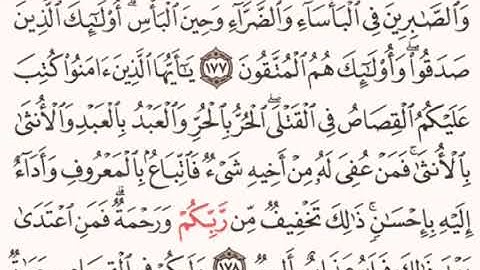 وَٱلصَّٰبِرِينَ فِي ٱلۡبَأۡسَآءِ وَٱلضَّرَّآءِ وَحِينَ ٱلۡبَأۡسِۗ أُوْلَٰٓئِكَ ٱلَّذِينَ
صَدَقُواْۖ وَأُوْلَٰٓئِكَ هُمُ ٱلۡمُتَّقُونَ ١٧٧ يَٰٓأَيُّهَا ٱلَّذِينَ ءَامَنُواْ كُتِبَ
عَلَيۡكُمُ ٱلۡقِصَاصُ فِي ٱلۡقَتۡلَىۖ ٱلۡحُرُّ بِٱلۡحُرِّ وَٱلۡعَبۡدُ بِٱلۡعَبۡدِ وَٱلۡأُنثَىٰ
بِٱلۡأُنثَىٰۚ فَمَنۡ عُفِيَ لَهُۥ مِنۡ أَخِيهِ شَيۡءٞ فَٱتِّبَاعُۢ بِٱلۡمَعۡرُوفِ وَأَدَآءٌ
إِلَيۡهِ بِإِحۡسَٰنٖۗ ذَٰلِكَ تَخۡفِيفٞ مِّن رَّبِّكُمۡ وَرَحۡمَةٞۗ فَمَنِ ٱعۡتَدَىٰ
١٧٨